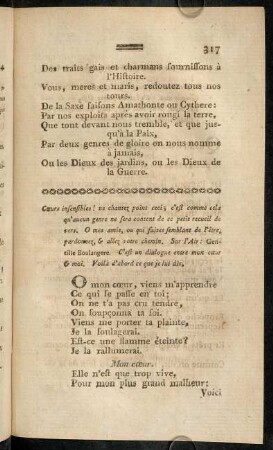 317
Des traits gais et charmans fournissons à
l'Histoire.
Vous, meres et maris, redoutez tous nos
tours.
De la Saxe faisons Amathonte ou Cythere:
Par nos exploits après avoir rongi la terre,
Que tout devant nous tremble, et que jus-
qu'à la Paix,
Par deux genres de gloire on nous nomme
à jamais,
Ou les Dieux des jardins, ou les Dieux de
la Guerre.
Cœurs insensibles! ne chantez point ceci; c'est comme cela
qu'aucun genre ne sera content de ce petit recueil de
vers. O mes amis, ou qui faites semblant de l'être,
pardonnez, & allez votre chemin. Sur l'Air: Gen-
tille Boulangere. C'est un dialogue entre mon cœur
& moi. Voilà d'abord ce que je lui dis.
O mon cœur, viens m'apprendre
Ce qui se passe en toi;
On ne t'a pas cru tendre,
On soupçonna ta foi.
Viens me porter ta plainte,
Je la soulagerai.
Est-ce une flamme éteinte?
Je la rallumerai.
Mon cœur.
Elle n'est que trop vive,
Pour mon plus grand malheur:
Voici